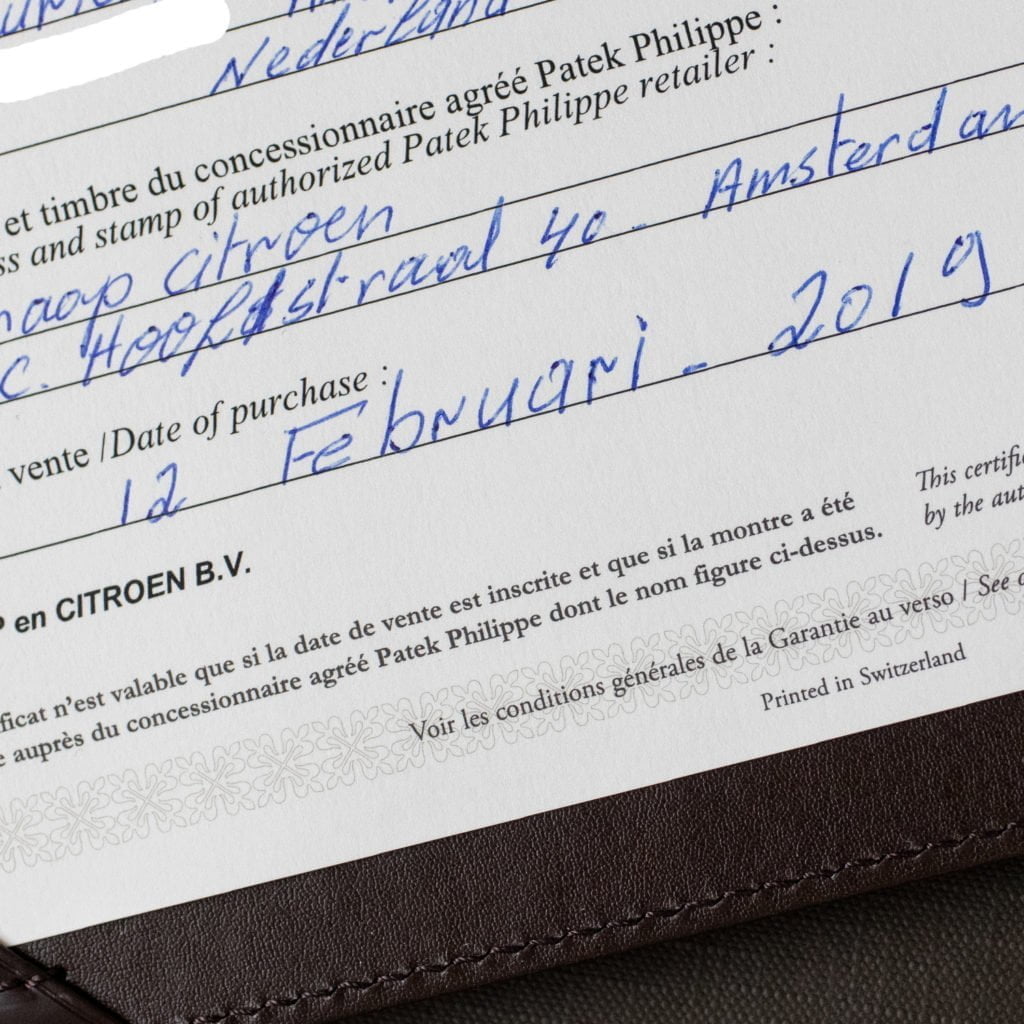 Nederland
et timbre du concessionnaire agréé Patek Philippe :
and stamp of authorized Patek Philippe retailer :
Citroen
C. Hooftstraat 40 - Amsterdam
vente / Date of purchase :
12 Februari - 2019
en CITROEN B.V.
n'est valable que si la date de vente est inscrite et que si la montre a été
auprès du concessionnaire agréé Patek Philippe dont le nom figure ci-dessus.
This
by the
Voir les conditions générales de la Garantie au verso / See
Printed in Switzerland